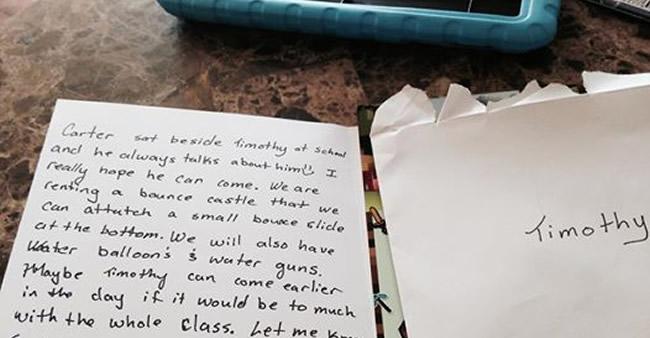 Carter sat beside Timothy at School
and he always talks about him I
really hope he can come. We are
renting a bounce castle that we
can attatch a small bounce slide
at the bottom. We will also have
water balloon's & water guns.
Maybe Timothy can come earlier
in the day if it would be to much
with the whole class. Let me
Timothy